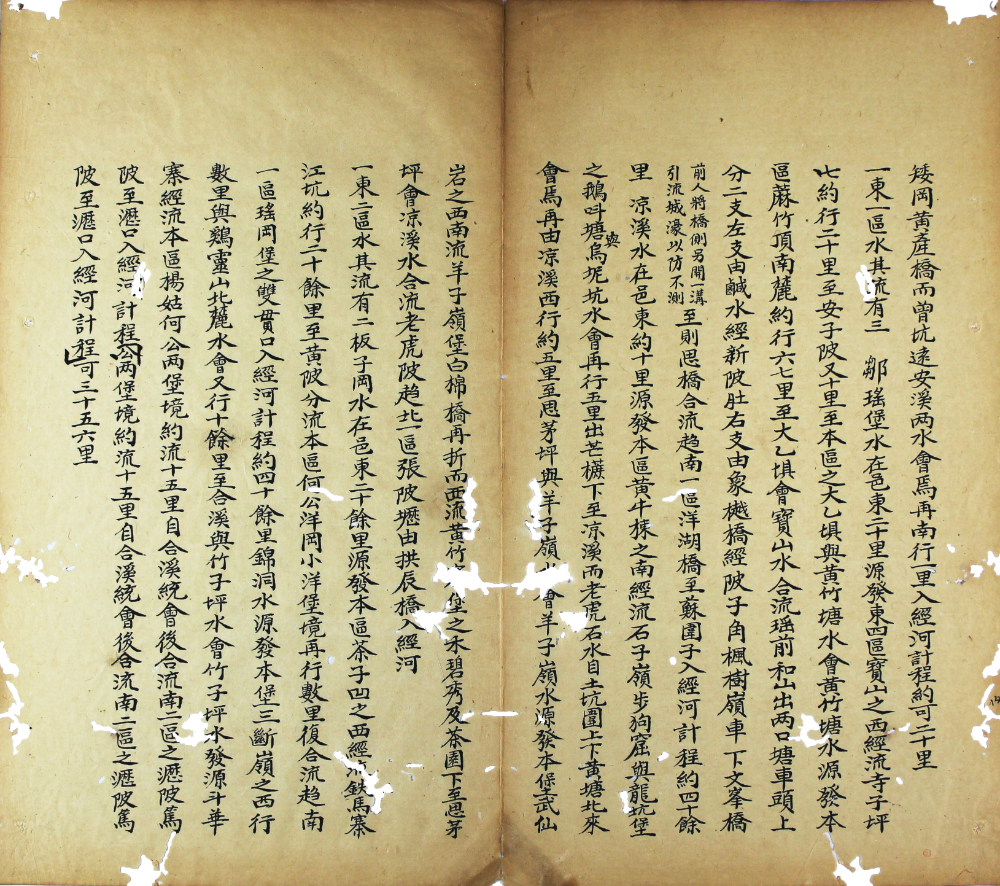 矮岡黃產橋而曾坑遠安溪两水會焉再南行一里入經河計程約可二十里
一東一區水其流有三 鄒瑤堡水在邑東二十里源發東四區寶山之西經流寺子坪
七約行二十里至安子陂又十里至本區之大乙惧與黃竹塘水會黃竹塘水源發本
區蔴竹頂南麓約行六七里至大乙惧會寶山水合流瑤前和山出两口塘車頭上
分二支左支由鹹水經新陂肚右支由象樾橋經陂子角楓樹嶺車下文峯橋
前人將橋側另開一溝
引流城濠以防不測
至則思橋合流趋南一區洋湖橋至蘇圍子入經河計程約四十餘
里 凉溪水在邑東約十里源發本區黃牛楳之南經流石子嶺步狗窟與龍坑堡
之鵝呌塘與烏坭坑水會再行五里出芒櫪下至凉溪而老虎石水自土坑圍上下黃塘北來
會焉再由凉溪西行約五里至思茅坪與羊子嶺水會羊子嶺水源發本堡武仙
岩之西南流羊子嶺堡白棉橋再折而西流黃竹堡之禾碧秀及茶園下至思茅
坪會凉溪水合流老虎陂趋北一區張陂壢由拱辰橋入經河
一東二區水其流有二板子岡水在邑東二十餘里源發本區茶子凹之西經流鉄馬寨
江坑約行二十餘里至黃陂分流本區何公洋岡小洋堡境再行數里復合流趋南
一區瑤岡堡之雙貫口入經河計程約四十餘里錦洞水源發本堡三斷嶺之西行
數里與鷄靈山北麓水會又行十餘里至合溪與竹子坪水會竹子坪水發源斗華
寨經流本區楊姑何公两堡境約流十五里自合溪統會後合流南二區之瀝陂篤
陂至瀝口入經河計程公两堡境約流十五里自合溪統會後合流南二區之瀝陂篤
陂至瀝口入經河計程可三十五六里